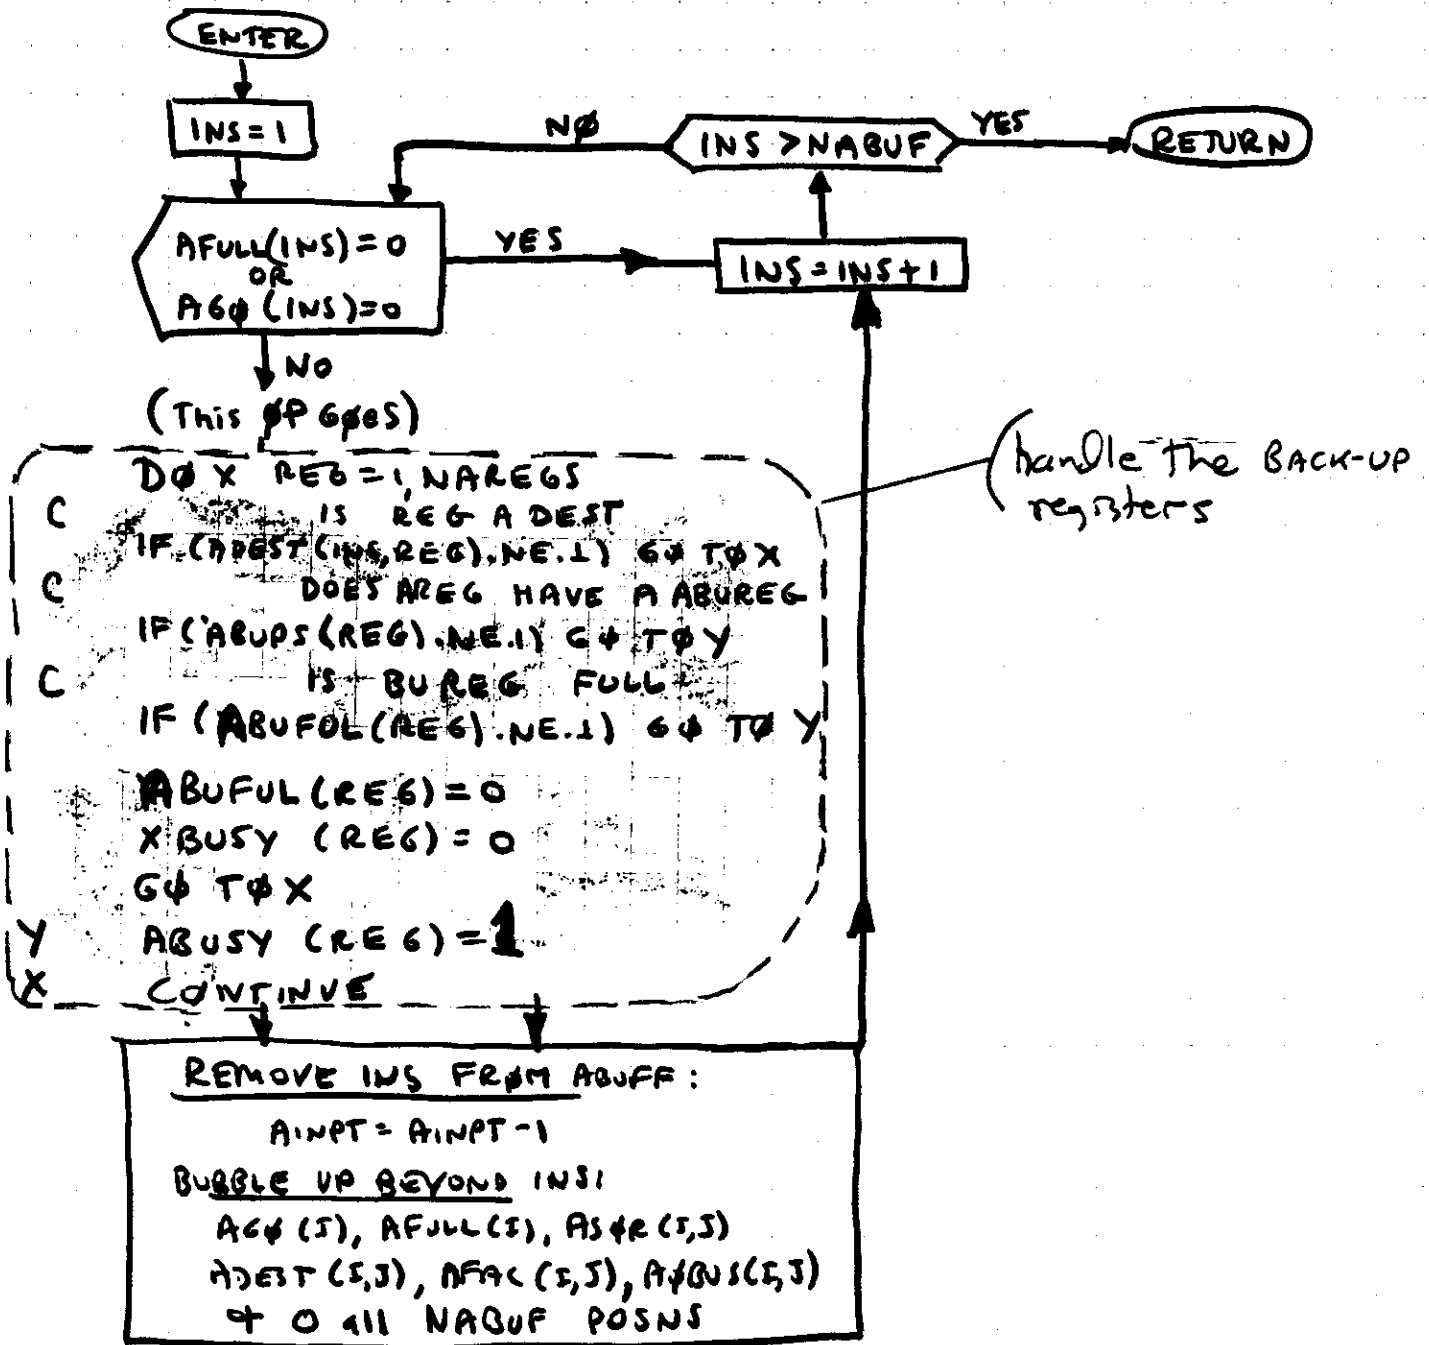 ENTER
INS=1
NØ
INS >NABUF
YES
RETURN
AFULL(INS)=0
OR
AGØ (INS)=0
YES
INS=INS+1
NO
(This ØP GØeS)
DØ X REG=1,NAREGS
C IS REG A DEST
IF (ADEST(INS,REG).NE.1) GØ TØ X
C DOES AREG HAVE A ABUREG
IF (ABUPS(REG).NE.1) GØ TØ Y
C IS BUREG FULL
IF (ABUFUL(REG).NE.1) GØ TØ Y
ABUFUL(REG)=0
XBUSY (REG)=0
GØ TØ X
Y ABUSY (REG)=1
X CØNTINUE
handle the BACK-UP
registers
REMOVE INS FRØM ABUFF:
AINPT=AINPT-1
BUBBLE UP BEYOND INS:
AGØ(I), AFULL(I), ASØR(I,J)
ADEST(I,J), AFAC(I,J), AØBUS(I,J)
+ 0 all NABUF POSNS